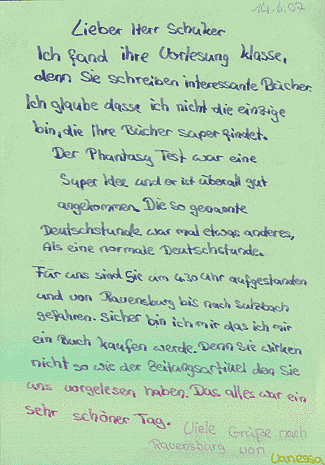 14.6.07
Lieber Herr Schuker
Ich fand ihre Vorlesung klasse,
denn Sie schreiben interessante Bücher.
Ich glaube dasse ich nicht die einzige
bin, die Ihre Bücher super findet.
Der Phantasy Test war eine
Super Idee und er ist überall gut
angekommen. Die so genannte
Deutschstunde war mal etwas anderes,
Als eine normale Deutschstunde.
Für uns sind Sie um 4.30 Uhr aufgestanden
und von Ravensburg bis nach Sulzbach
gefahren. Sicher bin ich mir das ich mir
ein Buch kaufen werde. Denn Sie wirken
nicht so wie der Zeitungsartikel den Sie
uns vorgelesen haben. Das alles war ein
sehr schöner Tag. Viele Grüße nach
Ravensburg von
Vanessa